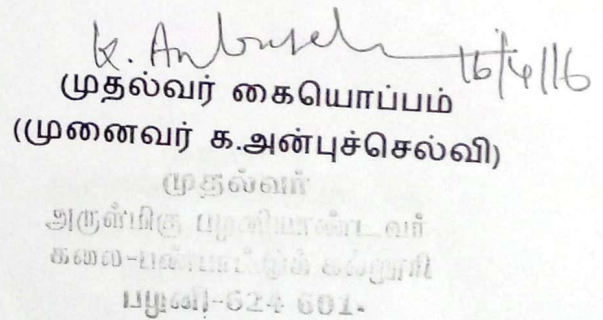 K. Anbusel 16/4/16
முதல்வர் கையொப்பம்
(முனைவர் க.அன்புச்செல்வி)
முதல்வர்
அருள்மிகு பழனியாண்டவர்
கலை-பண்பாட்டுக் கல்லூரி
பழனி-624 601.